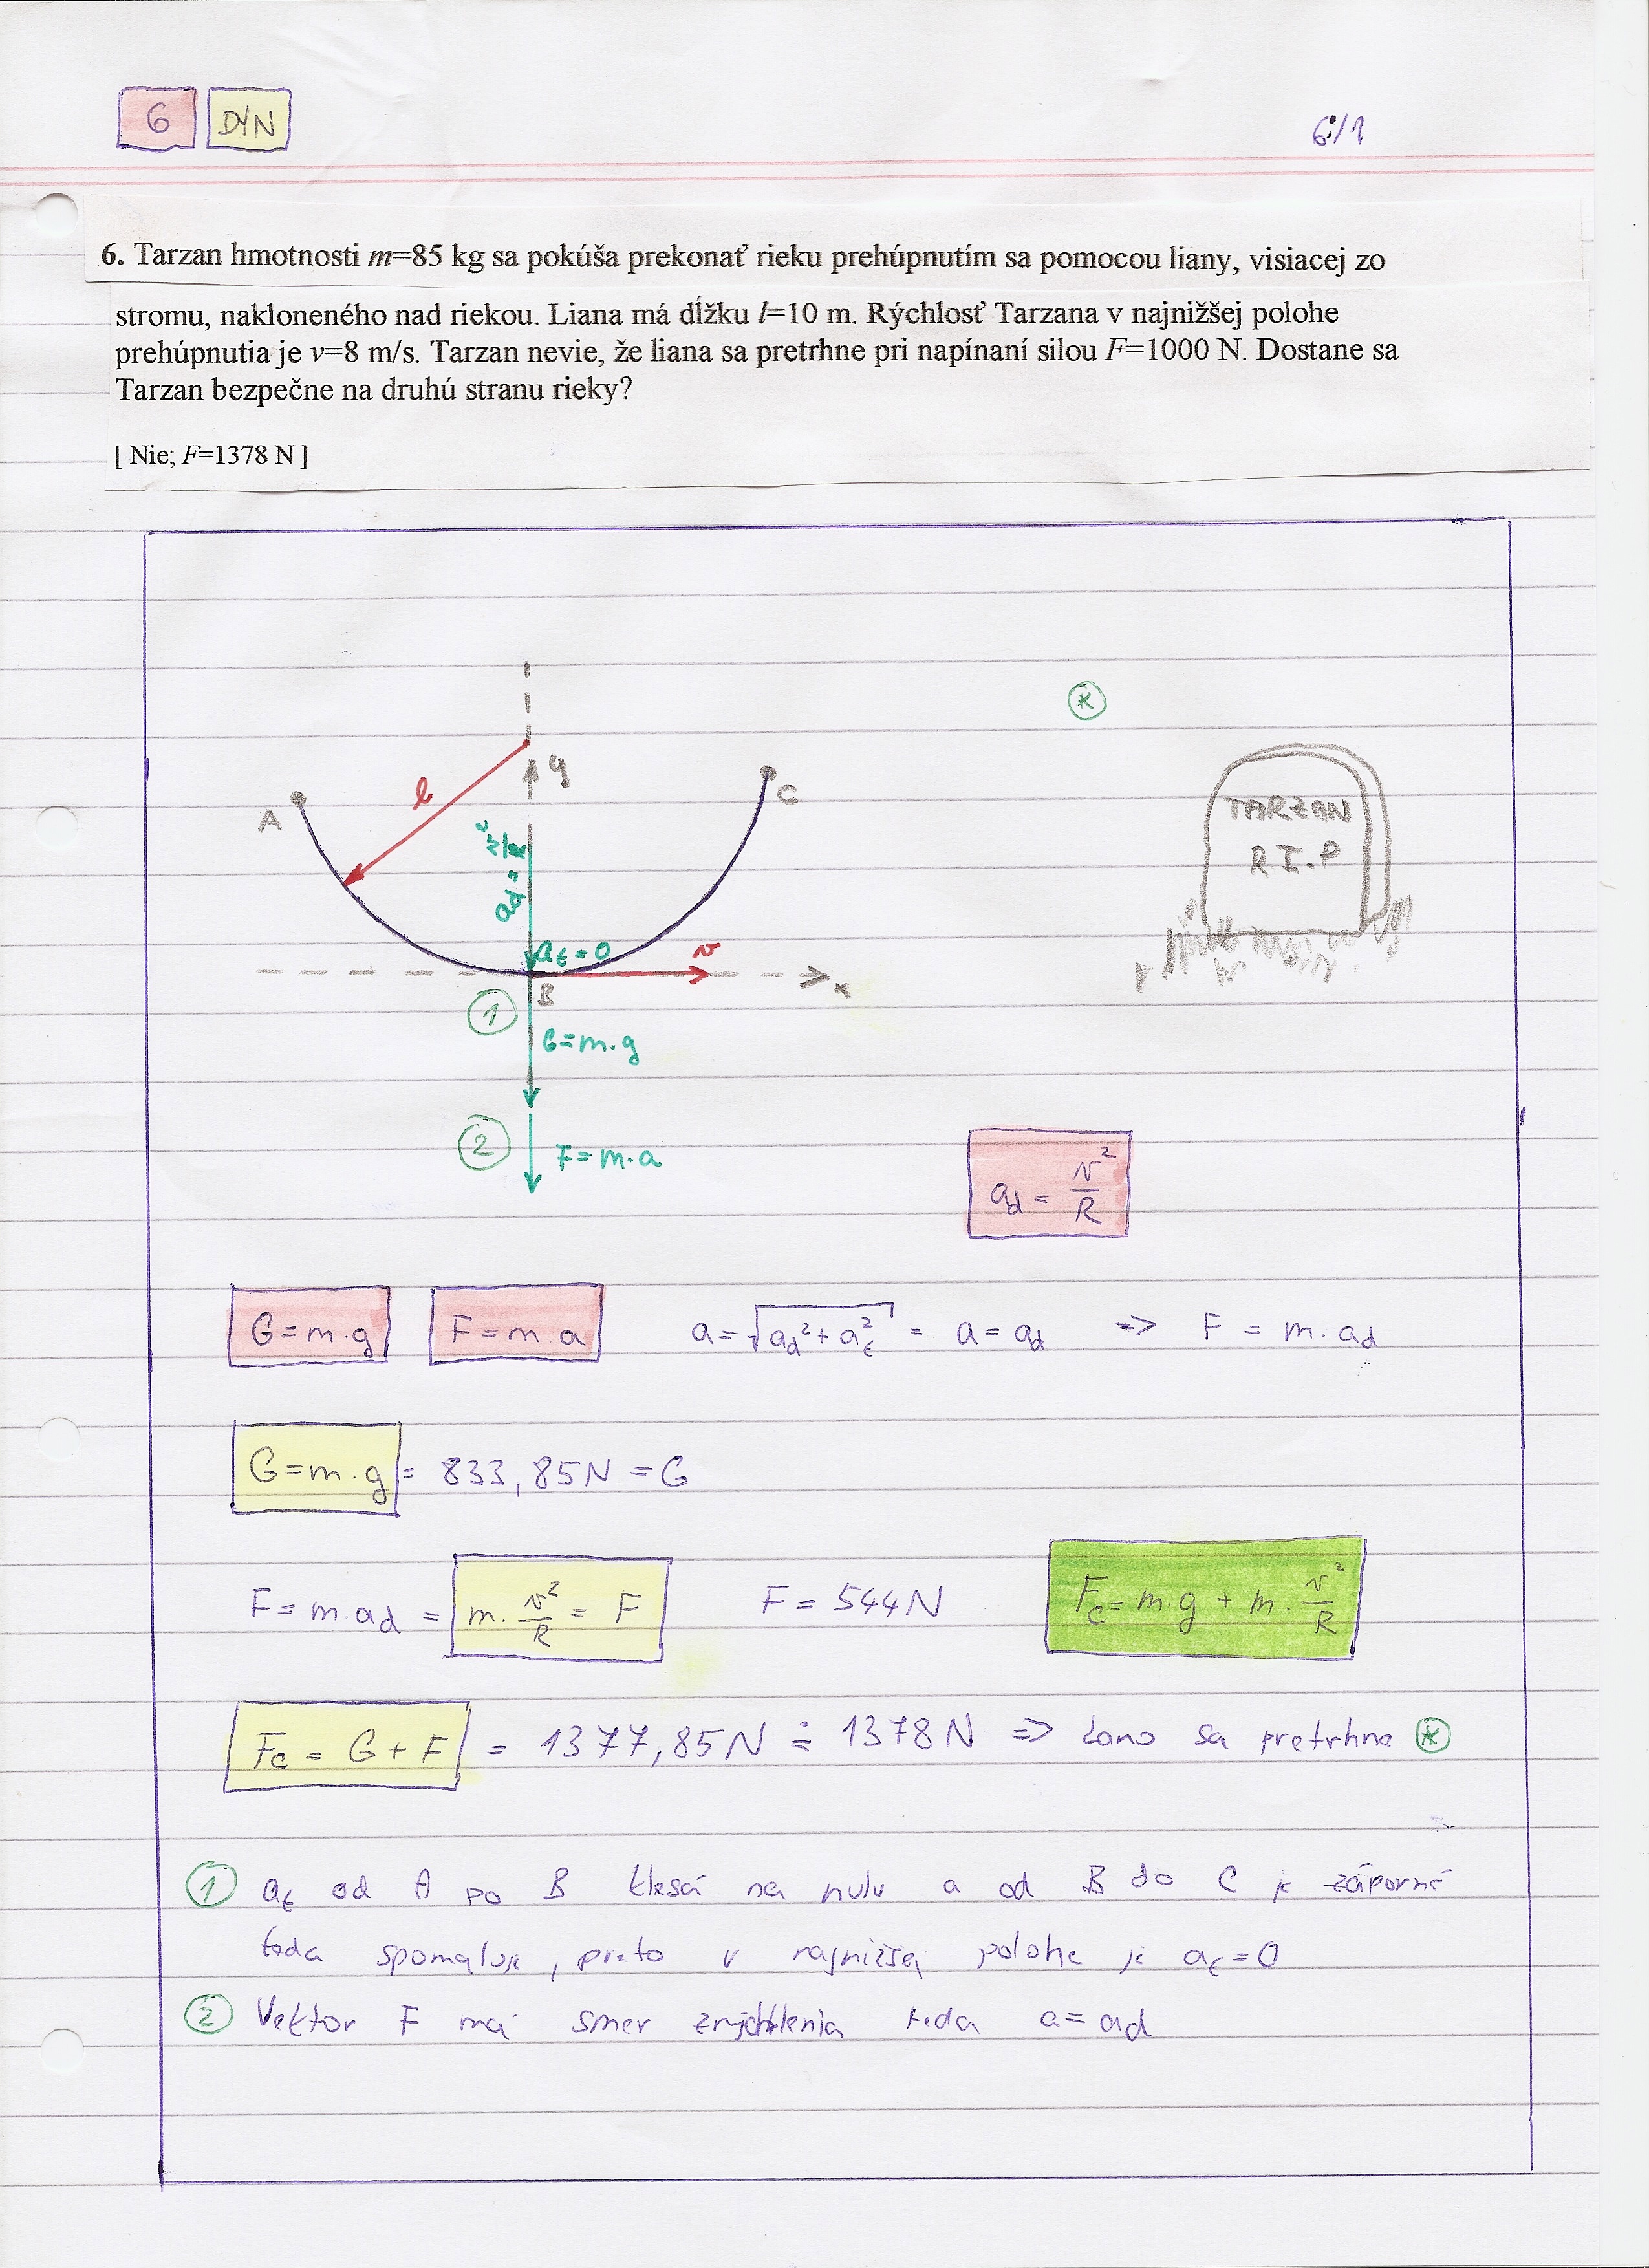 6 DYN
6/1
6. Tarzan hmotnosti m=85 kg sa pokúša prekonať rieku prehúpnutím sa pomocou liany, visiacej zo
stromu, nakloneného nad riekou. Liana má dĺžku l=10 m. Rýchlosť Tarzana v najnižšej polohe
prehúpnutia je v=8 m/s. Tarzan nevie, že liana sa pretrhne pri napínaní silou F=1000 N. Dostane sa
Tarzan bezpečne na druhú stranu rieky?
[ Nie; F=1378 N ]
*
y
l
A
C
TARZAN
R.I.P
ad = v²/R
at = 0
v
x
B
1
G=m.g
2
F=m.a
ad = v²/R
G=m.g
F=m.a
a=√ad²+at² = a=ad => F = m.ad
G=m.g = 833,85N = G
F=m.ad = m.v²/R = F
F=544N
Fc=m.g + m.v²/R
Fc = G+F = 1377,85N ≐ 1378N => Lano sa pretrhne *
1 at od A po B klesá na nulu a od B do C je záporné
teda spomaluje, preto v najnižšej polohe je at=0
2 Vektor F má smer zrýchlenia teda a=ad